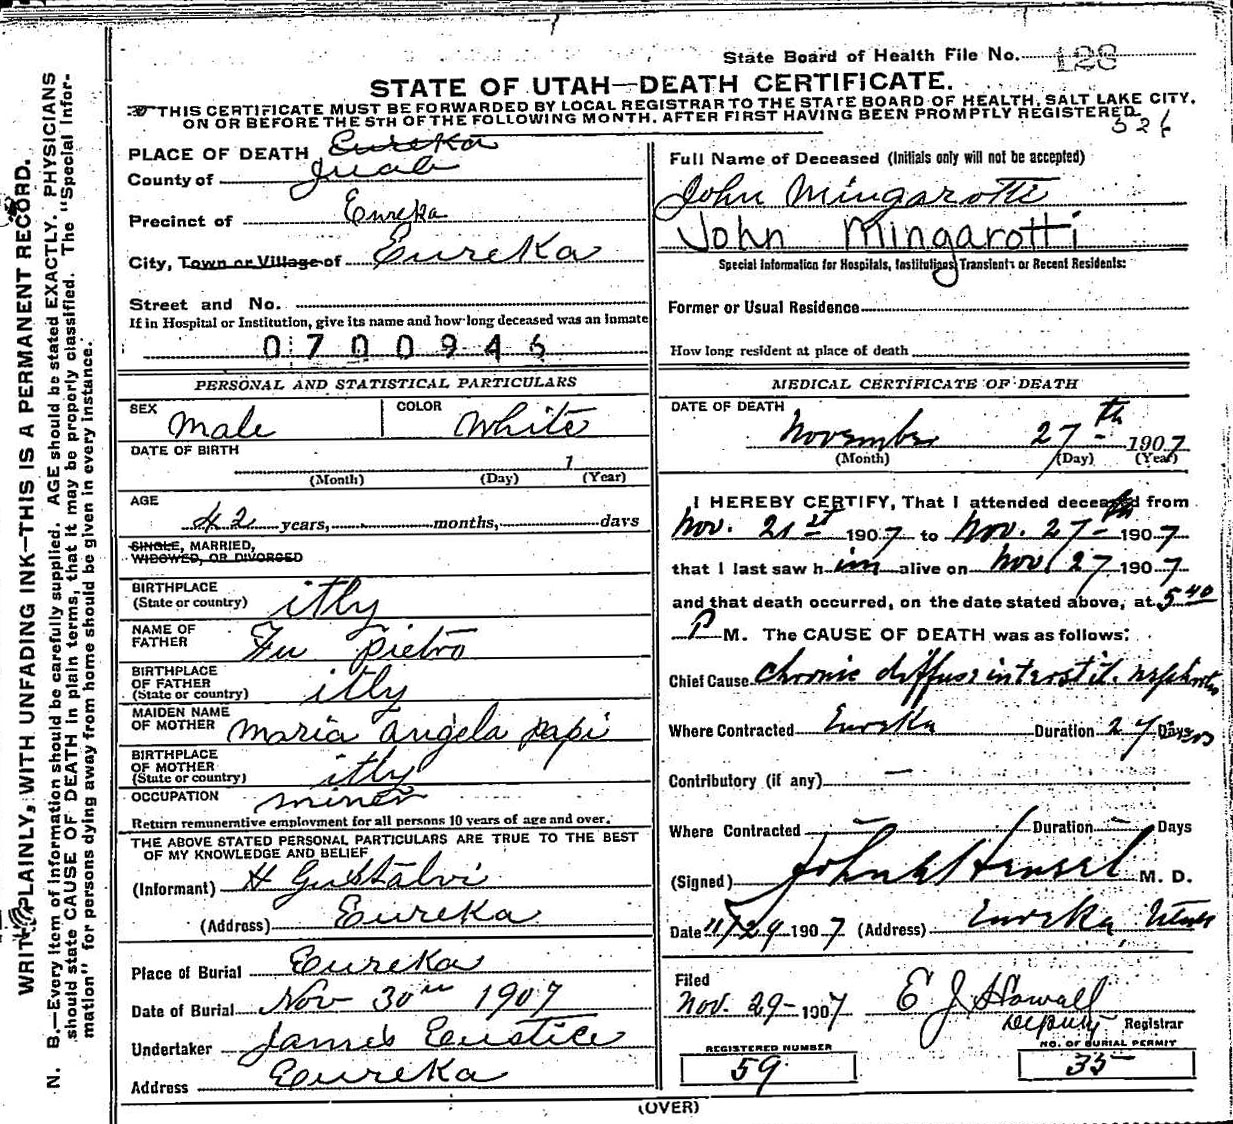 State Board of Health File No. 128
STATE OF UTAH—DEATH CERTIFICATE.
THIS CERTIFICATE MUST BE FORWARDED BY LOCAL REGISTRAR TO THE STATE BOARD OF HEALTH, SALT LAKE CITY,
ON OR BEFORE THE 5TH OF THE FOLLOWING MONTH, AFTER FIRST HAVING BEEN PROMPTLY REGISTERED.
526
WRITE PLAINLY, WITH UNFADING INK—THIS IS A PERMANENT RECORD.
N. B.—Every item of information should be carefully supplied. AGE should be stated EXACTLY. PHYSICIANS
should state CAUSE OF DEATH in plain terms, that it may be properly classified. The "Special Infor-
mation" for persons dying away from home should be given in every instance.
PLACE OF DEATH Eureka
County of Juab
Precinct of Eureka
City, Town or Village of Eureka
Street and No.
If in Hospital or Institution, give its name and how long deceased was an inmate
0700946
PERSONAL AND STATISTICAL PARTICULARS
SEX Male COLOR White
DATE OF BIRTH 1
(Month) (Day) (Year)
AGE
42 years, months, days
SINGLE, MARRIED,
WIDOWED, OR DIVORCED
BIRTHPLACE
(State or country) itly
NAME OF
FATHER Fu pietro
BIRTHPLACE
OF FATHER
(State or country) itly
MAIDEN NAME
OF MOTHER maria angela papi
BIRTHPLACE
OF MOTHER
(State or country) itly
OCCUPATION miner
Return remunerative employment for all persons 10 years of age and over.
THE ABOVE STATED PERSONAL PARTICULARS ARE TRUE TO THE BEST
OF MY KNOWLEDGE AND BELIEF
(Informant) H Gustalvi
(Address) Eureka
Place of Burial Eureka
Date of Burial Nov 30th 1907
Undertaker James Eustice
Address Eureka
Full Name of Deceased (Initials only will not be accepted)
John Mingarotti
John Mingarotti
Special Information for Hospitals, Institutions, Transients or Recent Residents:
Former or Usual Residence
How long resident at place of death
MEDICAL CERTIFICATE OF DEATH
DATE OF DEATH
November 27th 1907
(Month) (Day) (Year)
I HEREBY CERTIFY, That I attended deceased from
Nov. 21st 1907 to Nov. 27th 1907
that I last saw him alive on Nov 27 1907
and that death occurred, on the date stated above, at 5 40
P M. The CAUSE OF DEATH was as follows:
Chief Cause chronic diffuse interstit. nephritis
Where Contracted Eureka Duration 27 Days
Contributory (if any) —
Where Contracted — Duration — Days
(Signed) John Hensel M. D.
Date 11/29 1907 (Address) Eureka, Utah
Filed
Nov. 29- 1907 E J Howall
Deputy Registrar
REGISTERED NUMBER NO. OF BURIAL PERMIT
59 35
(OVER)